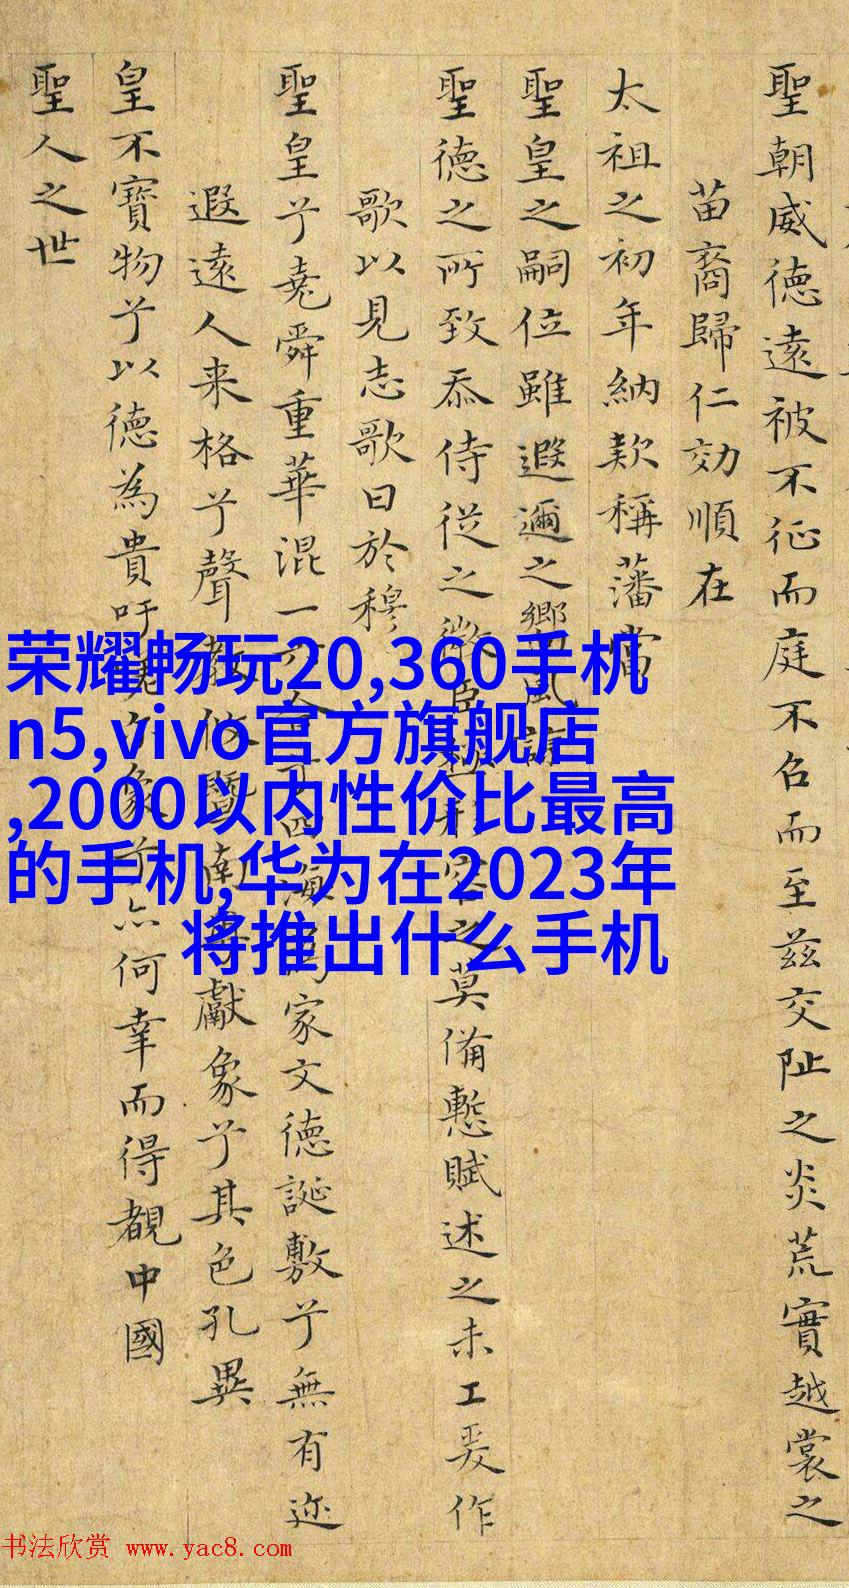 聖朝威德遠被不征而庭不召而至茲交阯之炎荒實越裳之
苗裔歸仁効順在
太祖之初年納款稱藩當
聖皇之嗣位雖遐邇之嚮風諒
聖德之所致忝侍從之微臣形容之莫備慙賦述之未工爰作
歌以見志歌曰於穆
聖皇兮堯舜重華混一六合兮四海為家文德誕敷兮無有迩
遐遠人来格兮聲教攸暨南獻象兮其色孔異
皇不寶物兮以德為貴吁嗟象兮亦何幸而得覩中國
聖人之世
荣耀畅玩20,360手机
n5,vivo官方旗舰店
,2000以内性价比最高
的手机,华为在2023年
将推出什么手机
书法欣赏 www.yac8.com